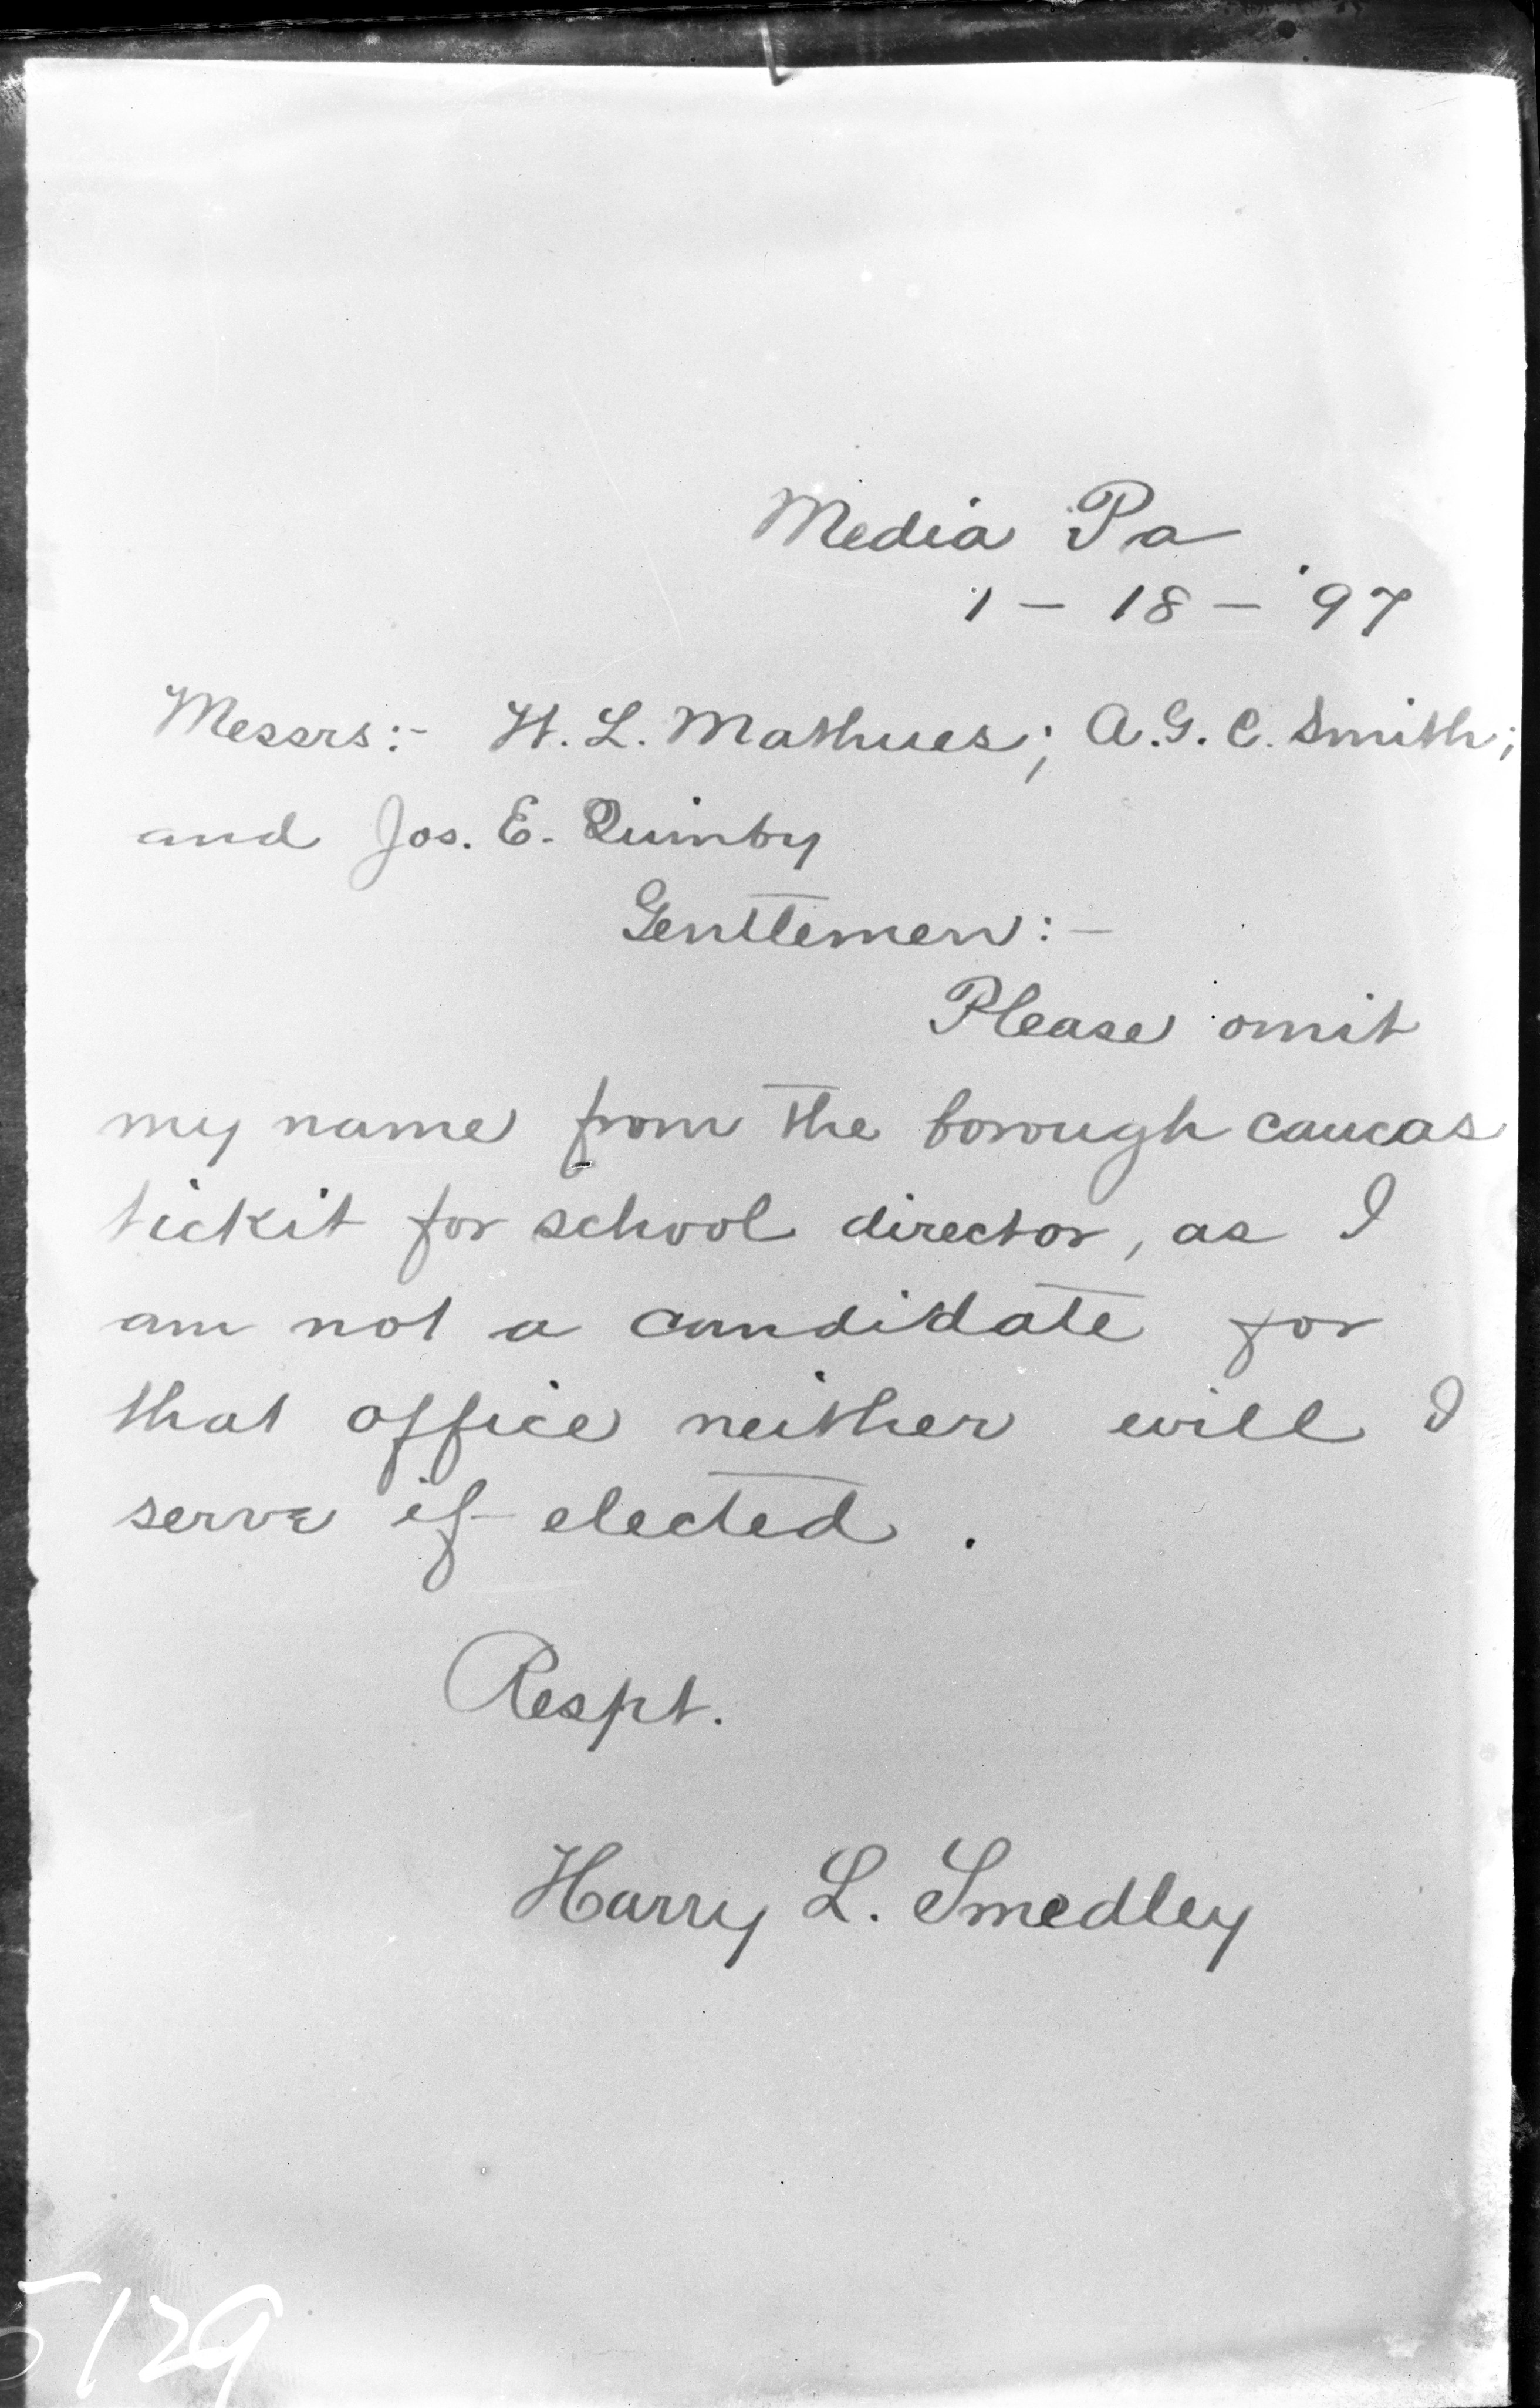 Media Pa
1 - 18 - '97
Messrs:- W. L. Mathues; A. G. C. Smith;
and Jos. E. Quimby
Gentlemen:-
Please omit
my name from the borough caucas
tickit for school director, as I
am not a candidate for
that office neither will I
serve if elected.
Respt.
Harry L. Smedley
5129